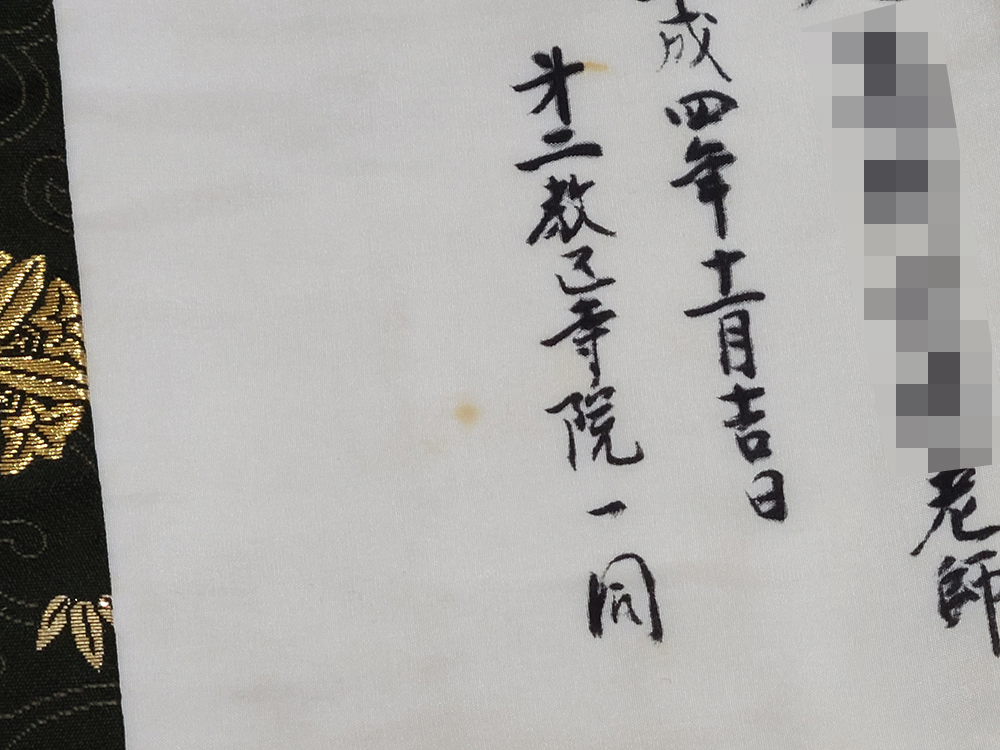 老師
成四年十一月吉日
第二教区寺院一同